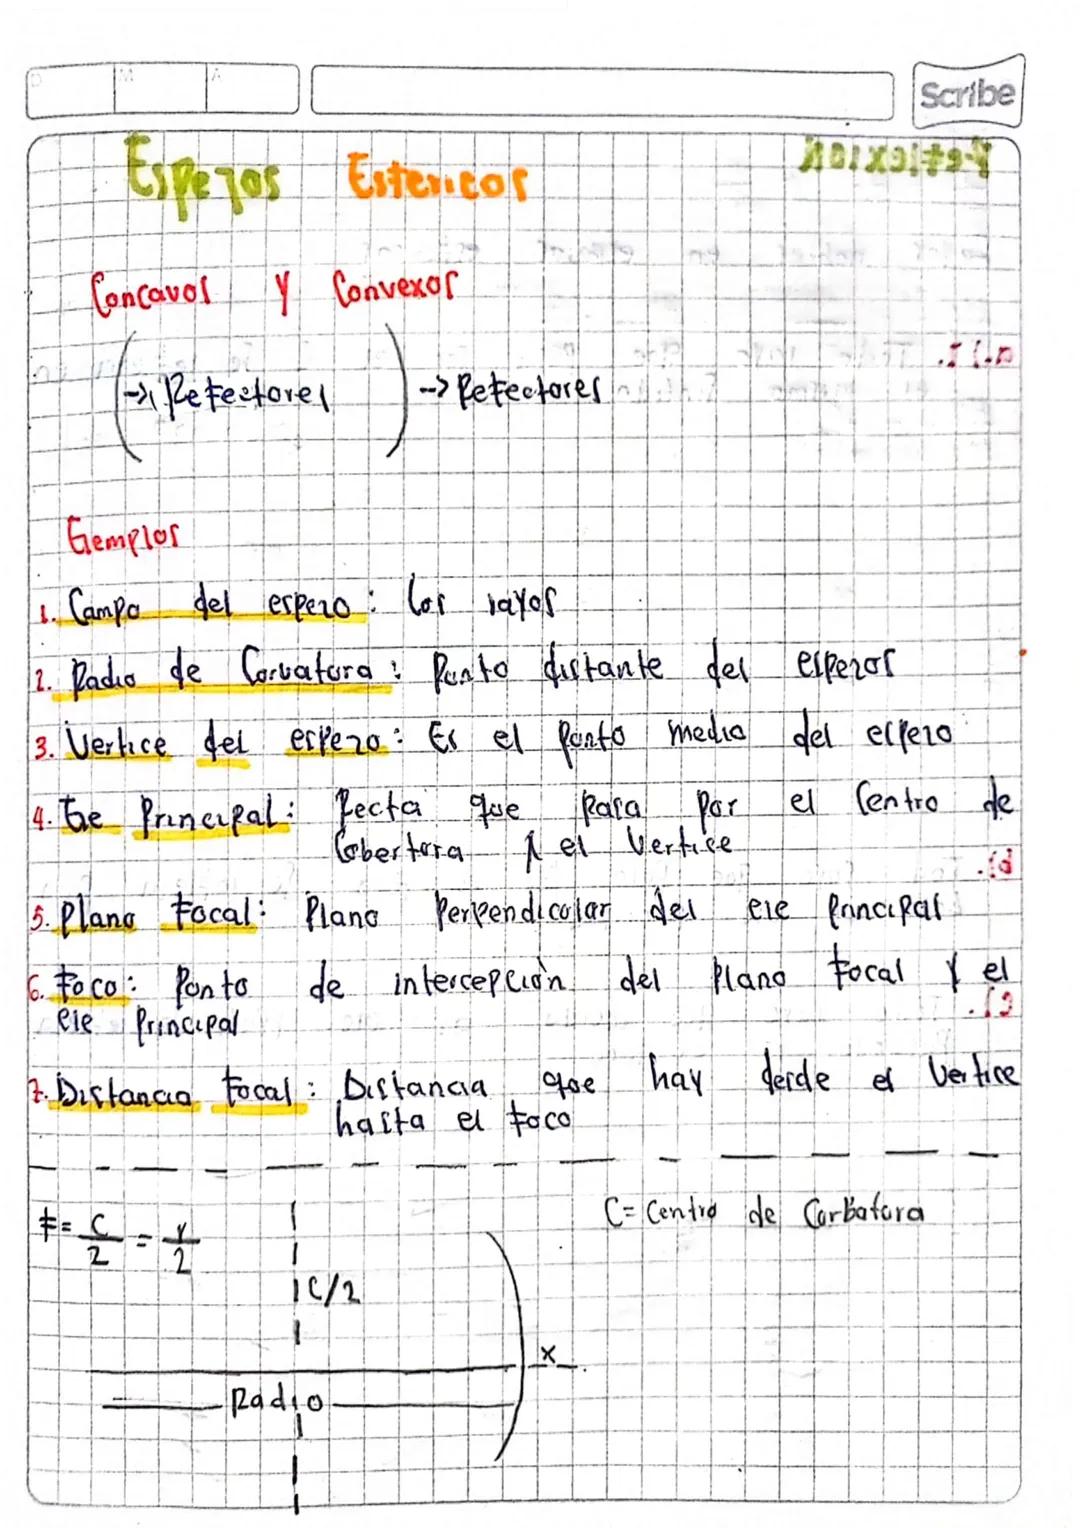 Scribe
Espejos Esfericos
Concavos y Convexos
→ Refectores → Refectores
Ejemplos
1. Campo del espejo: Los rayos
2. Radio de Corvatura: Punto distante del espejos
3. Vertice del espejo: Es el punto medio del espejo
4. Eje Principal: Recta que pasa por el Centro de
Cobertura y el Vertice
5. Plano Focal: Plano Perpendicular del eje principal
6. Foco: Punto de intercepción del Plano Focal y el
eje Principal
7. Distancia Focal: Distancia que hay desde el Vertice
hasta el Foco
F = C/2 = r/2
C = Centro de Carbatura
C/2
x
Radio